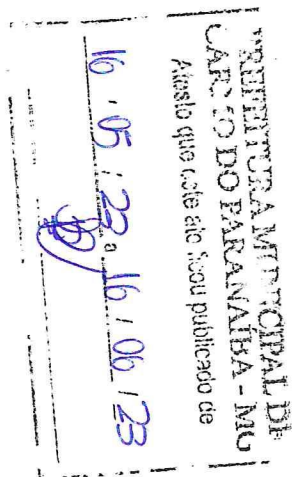 PREFEITURA MUNICIPAL DE
CARMO DO PARANAÍBA - MG
Atesto que este ato ficou publicado de
16 / 05 / 23 a 16 / 06 / 23